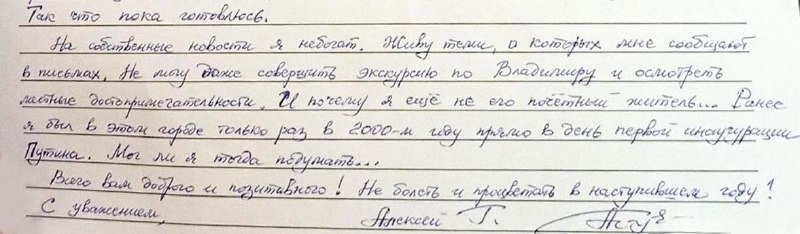 Так что пока готовлюсь.
На собственные новости я небогат. Живу теми, о которых мне сообщают
в письмах. Не могу даже совершить экскурсию по Владимиру и осмотреть
местные достопримечательности. И почему я ещё не его почётный житель... Ранее
я был в этом городе только раз в 2000-м году прямо в день первой инаугурации
Путина. Мог ли я тогда подумать...
Всего вам доброго и позитивного! Не болеть и процветать в наступившем году!
С уважением, Алексей Г.